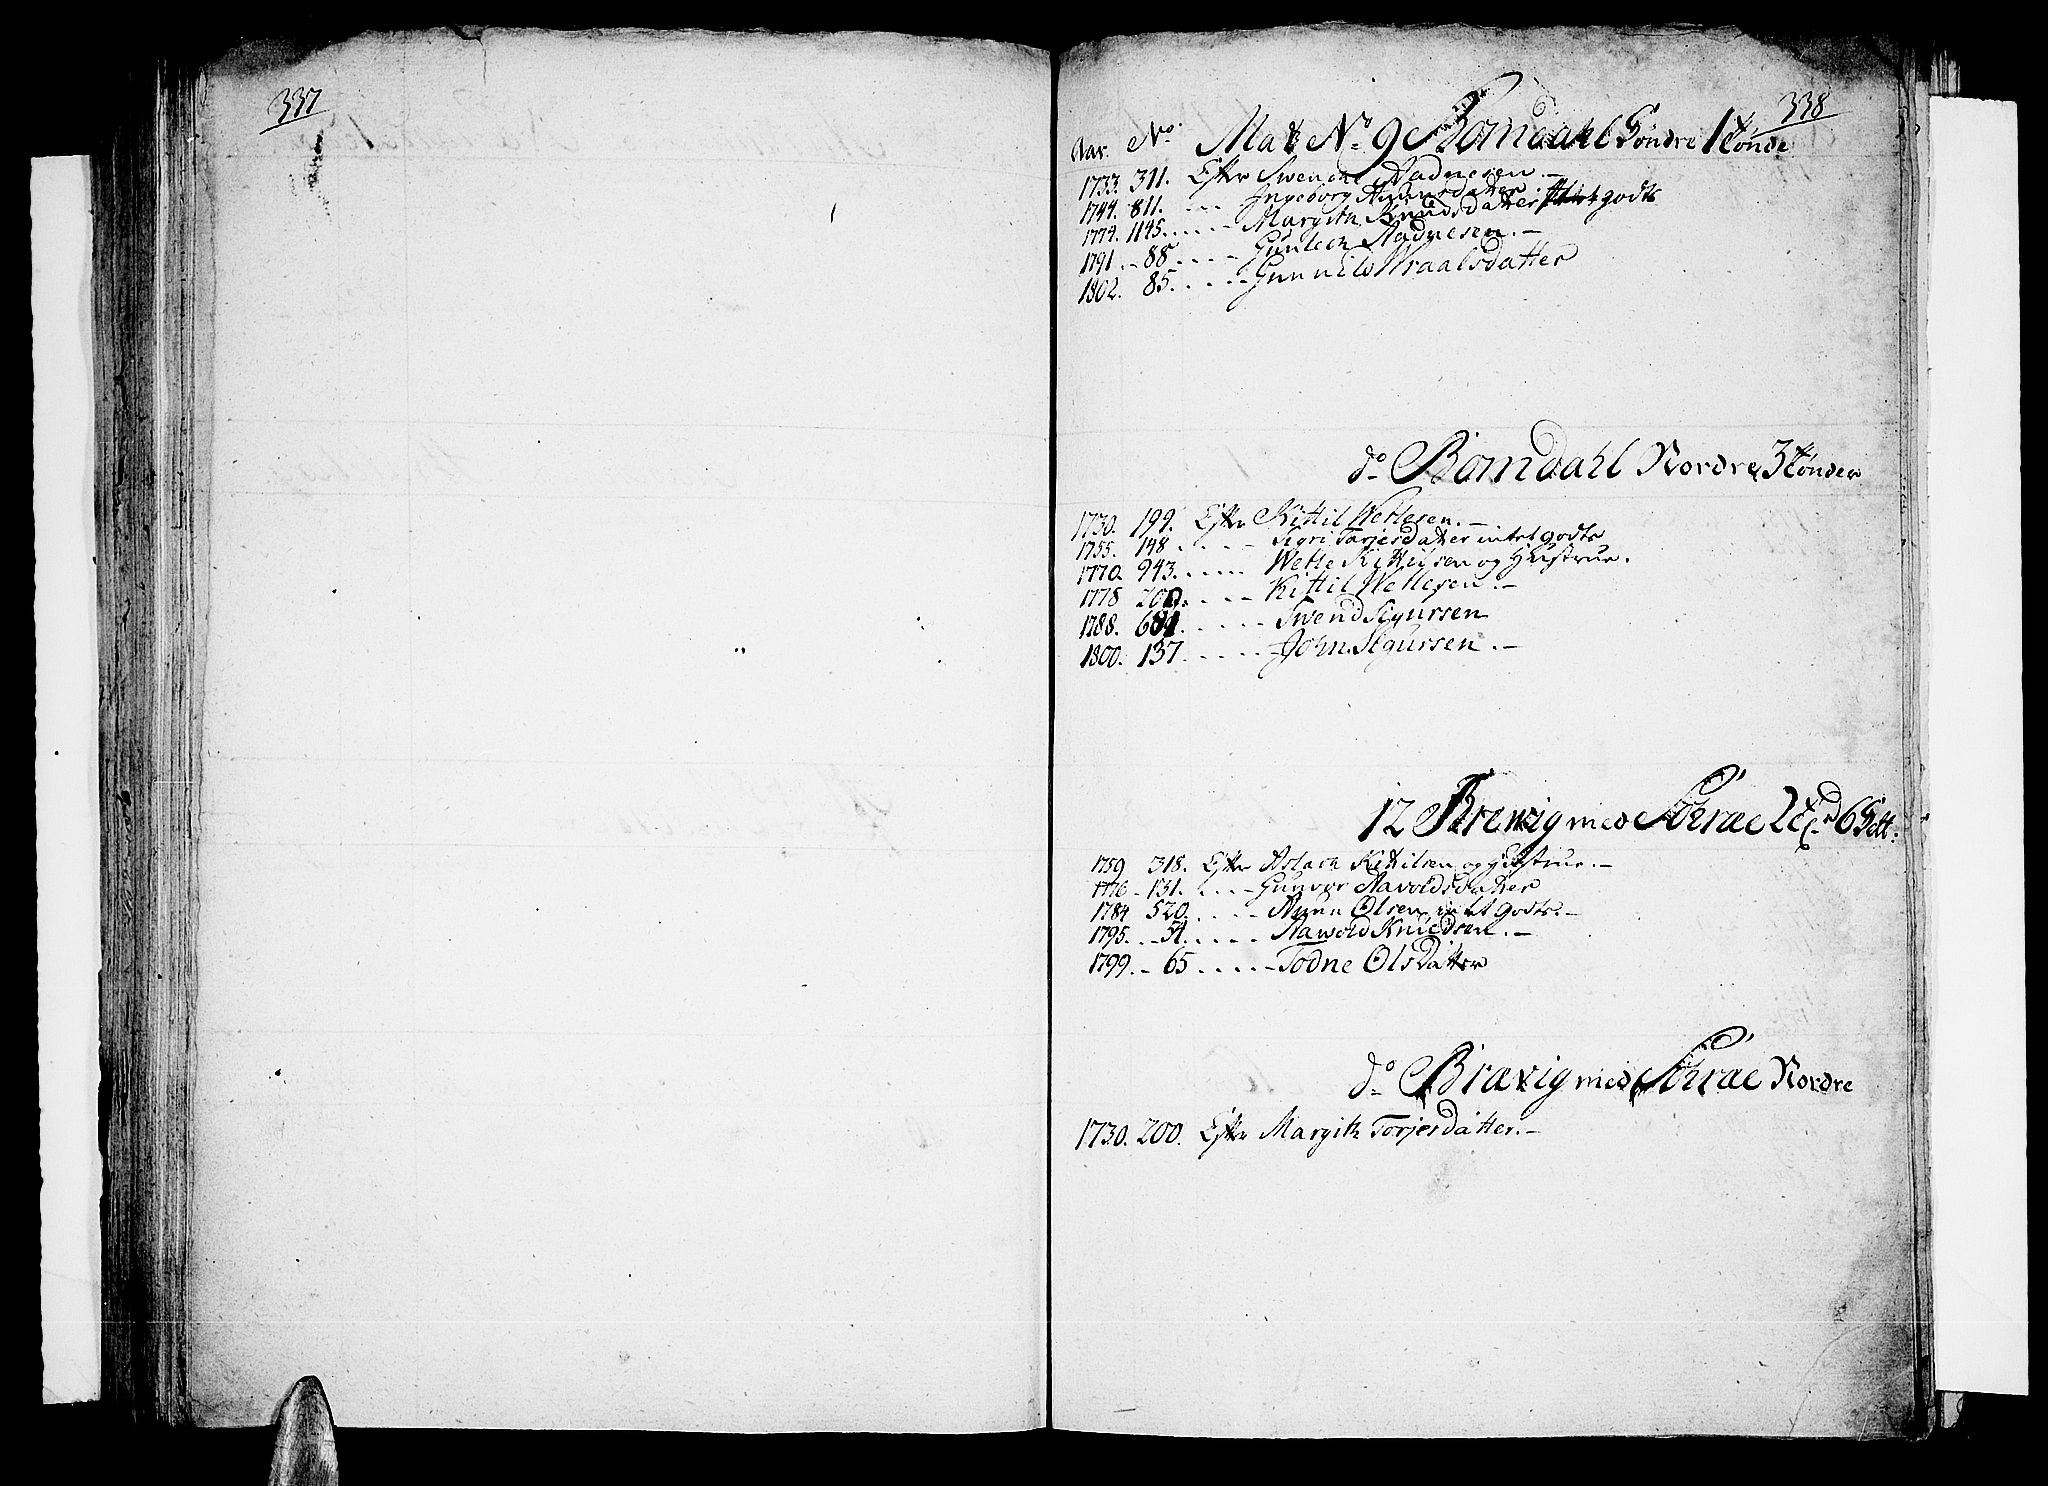 337
338
Aar. No. Mat No. 9 Bomdahl Söndre 1 tönde
1733. 311. Efter Swend Aadnesen.
1744. 811. Ingeborg Aamundsdatter godts
1774. 1145. Margith Knudsdatter
1791. 88. Gunlech Aadnesen.
1802. 85. Gunnild Wraalsdatter
do Bomdahl Nordre 3 tönder
1730. 199. Efter Kittil Wetlesen.
1755. 148. Sigri Torjersdatter intet godts
1770. 943. Wetle Kittilsen og Hustrue.
1778 200. Kittil Wetlesen.
1788. Swend Sigursen
1800. 137. John Sigursen.
12 Brewig med Schræe 2 6 Sett:
1759 318. Efter Aslach Kittilsen og Hustrue.
1776 131. Gunvor Aavoldsdatter
1784 520. Amun Olsen intet godts.
1795. Aawold Knudsen.
1799. 65 Todne Olsdatter
do Brævig med Schræe Nordre
1730. 200. Efter Margith Torjersdatter.